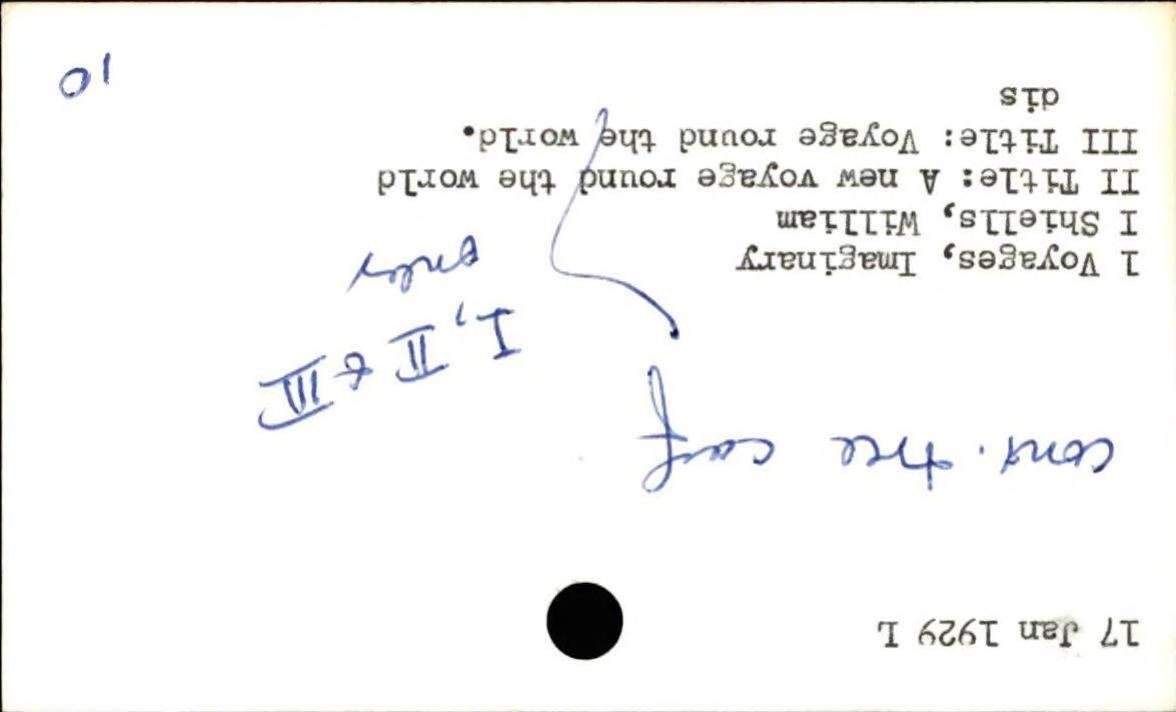 17 Jan 1929 L
I, II & III
only
1 Voyages, Imaginary
I Shiells, William
II Title: A new voyage round the world
III Title: Voyage round the world.
dis
10